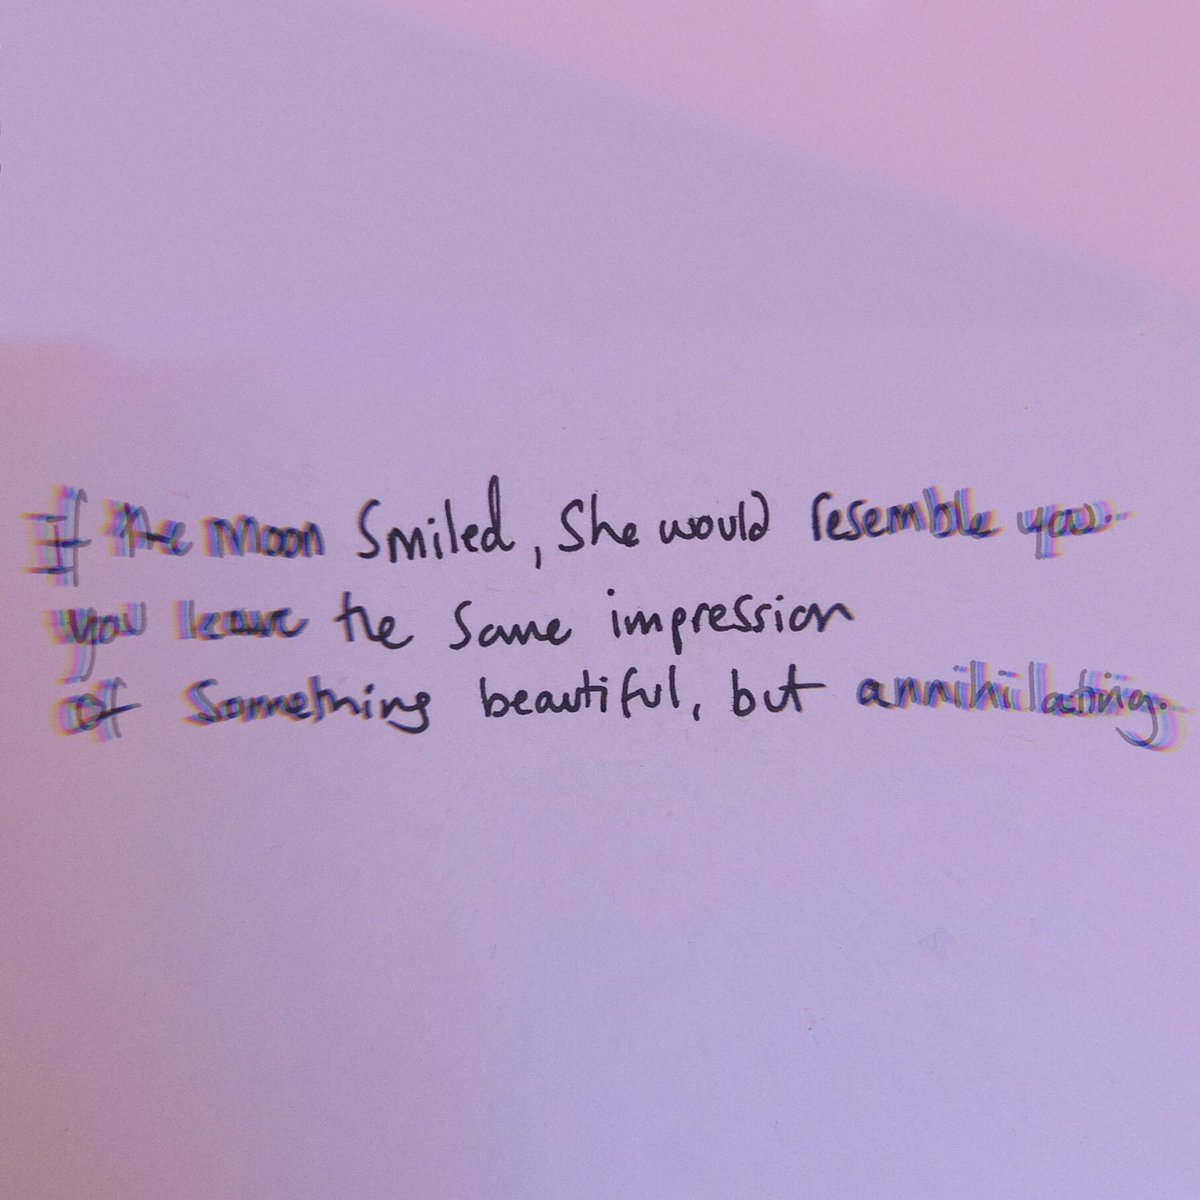 If the Moon Smiled, She would resemble you.
you leave the Same impression
of Something beautiful, but annihilating.